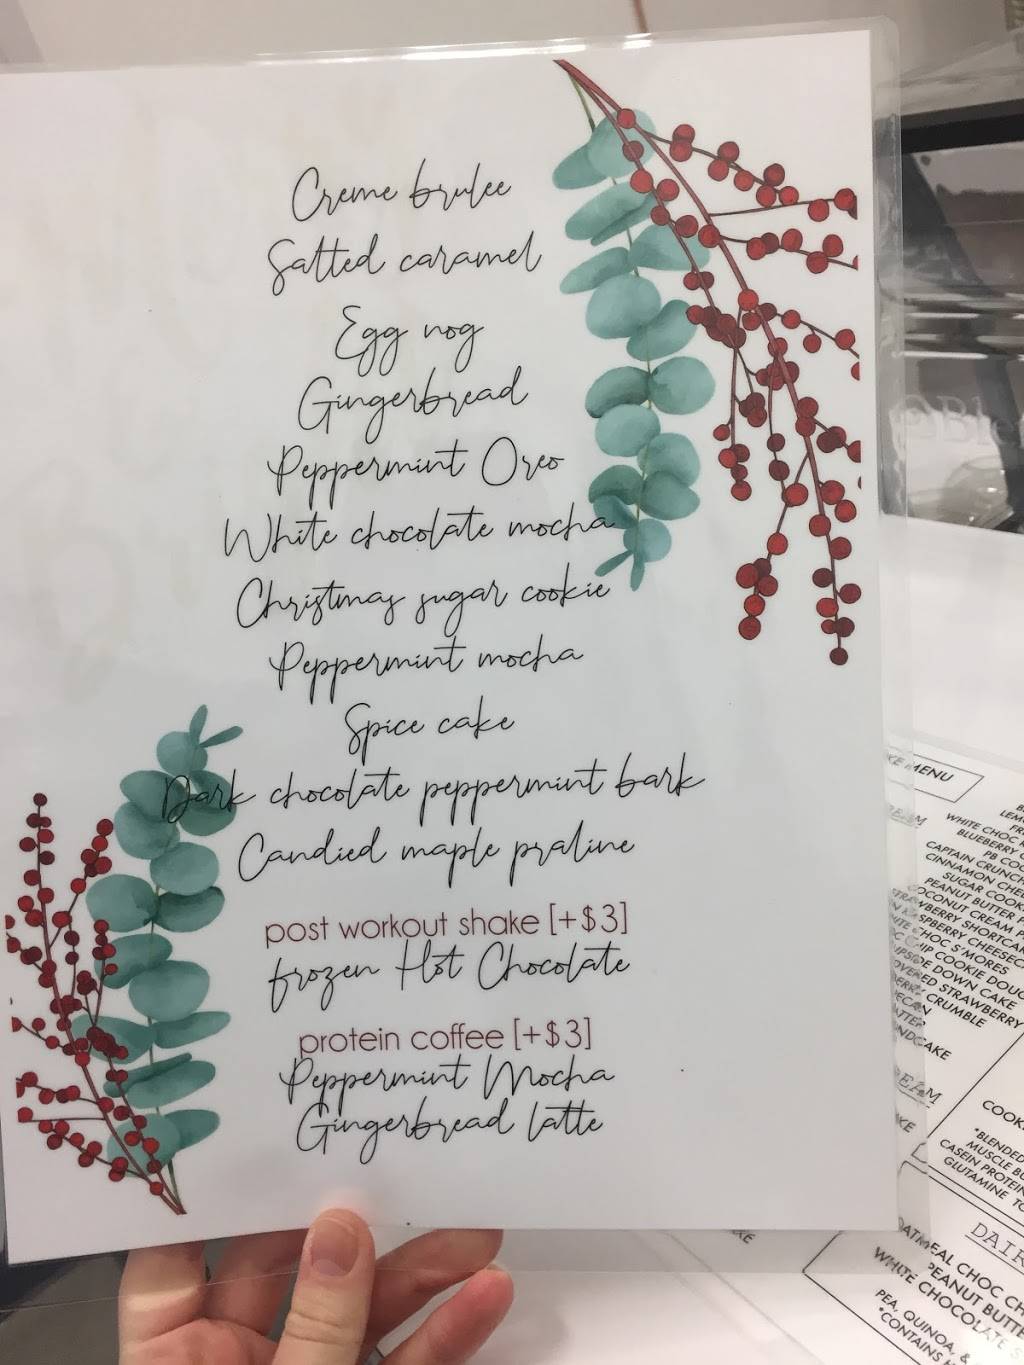 Creme brulee
Salted caramel
Egg nog
Gingerbread
Peppermint Oreo
White chocolate mocha
Christmas sugar cookie
Peppermint mocha
Spice cake
Dark chocolate peppermint bark
Candied maple praline
post workout shake [+$3]
frozen Hot Chocolate
protein coffee [+$3]
Peppermint Mocha
Gingerbread latte
MENU
WHITE CHOC
BLUEBERRY
PB
CAPTAIN CRUNCH
CINNAMON
SUGAR
PEANUT BUTTER
COCONUT CREAM
STRAWBERRY SHORTCAKE
RASPBERRY
CHOC S'MORES
CHIP COOKIE
UPSIDE DOWN CAKE
STRAWBERRY
CRUMBLE
PECAN
*BLENDED
MUSCLE
CASEIN PROTEIN
GLUTAMINE
OATMEAL CHOC
PEANUT BUTTER
WHITE CHOCOLATE
PEA, QUINOA, &
*CONTAINS